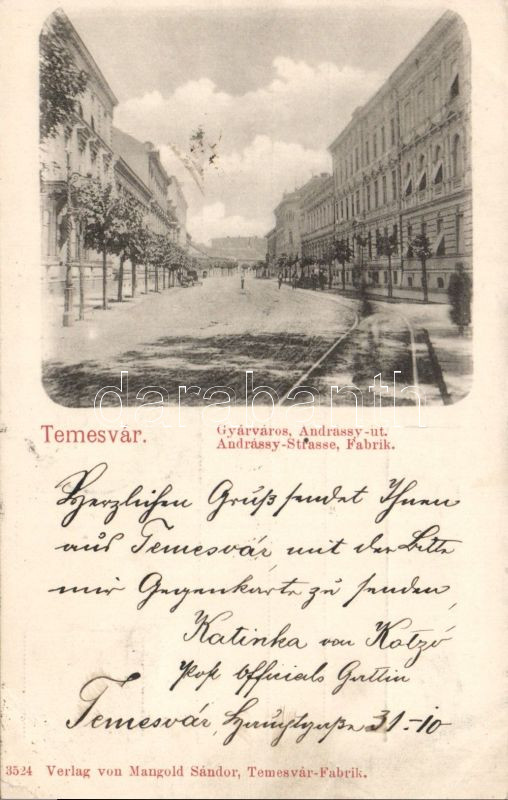 darabanth
Temesvár.
Gyárváros, Andrassy-ut.
Andrássy-Strasse, Fabrik.
Herzlichen Gruß sendet Ihnen
aus Temesvár mit der Bitte
mir Gegenkarte zu senden,
Katinka von Kotzó
Post Officials Gattin
Temesvár, Hauptgaße 31.-10
3524 Verlag von Mangold Sándor, Temesvár-Fabrik.